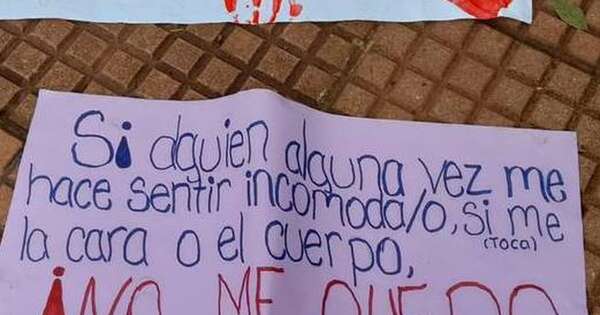 Si alguien alguna vez me
hace sentir incomoda/o, si me
(TOCA)
la cara o el cuerpo,
¡NO ME QUEDO